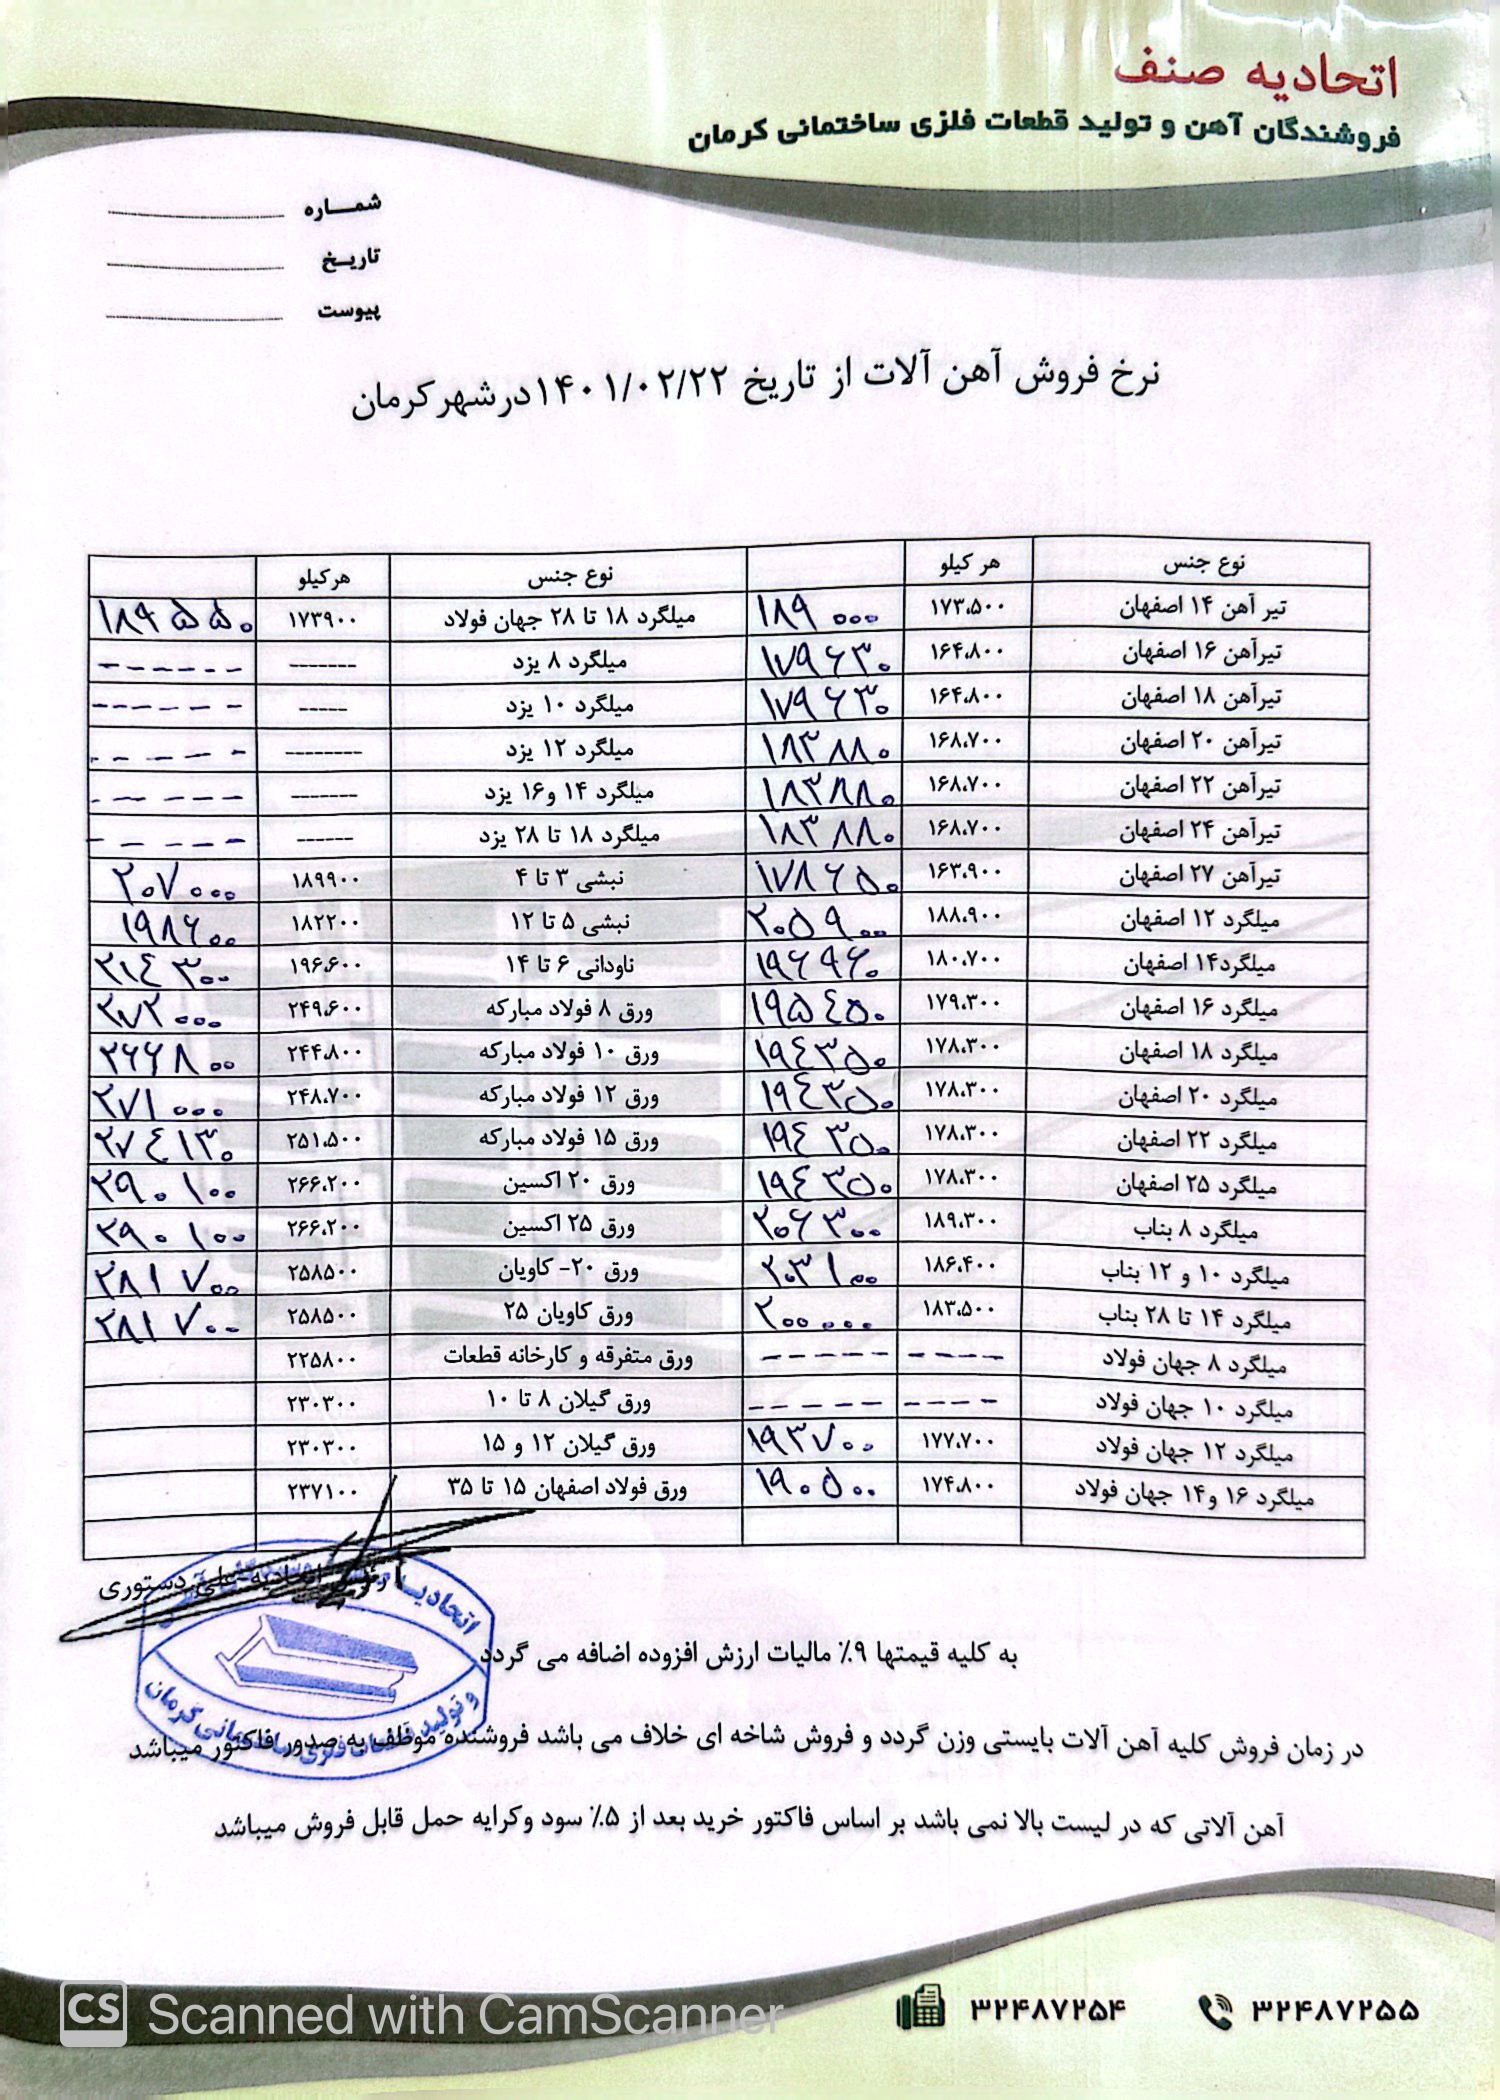 اتحادیه صنف
فروشندگان آهن و تولید قطعات فلزی ساختمانی کرمان
شمــاره
تاریــخ
پیوست
نرخ فروش آهن آلات از تاریخ ۱۴۰۱/۰۲/۲۲درشهرکرمان
نوع جنس هر کیلو نوع جنس هرکیلو
تیر آهن ۱۴ اصفهان ۱۷۳،۵۰۰ ۱۸۹۰۰۰ میلگرد ۱۸ تا ۲۸ جهان فولاد ۱۷۳۹۰۰ ۱۸۹۵۵۰
تیرآهن ۱۶ اصفهان ۱۶۴،۸۰۰ ۱۷۹۶۳۰ میلگرد ۸ یزد ------- ------
تیرآهن ۱۸ اصفهان ۱۶۴،۸۰۰ ۱۷۹۶۳۰ میلگرد ۱۰ یزد ----- ------
تیرآهن ۲۰ اصفهان ۱۶۸،۷۰۰ ۱۸۳۸۸۰ میلگرد ۱۲ یزد -------- ------
تیرآهن ۲۲ اصفهان ۱۶۸،۷۰۰ ۱۸۳۸۸۰ میلگرد ۱۴ و۱۶ یزد ------- ------
تیرآهن ۲۴ اصفهان ۱۶۸،۷۰۰ ۱۸۳۸۸۰ میلگرد ۱۸ تا ۲۸ یزد ------ -----
تیرآهن ۲۷ اصفهان ۱۶۳،۹۰۰ ۱۷۸۶۵۰ نبشی ۳ تا ۴ ۱۸۹۹۰۰ ۲۰۷۰۰۰
میلگرد ۱۲ اصفهان ۱۸۸،۹۰۰ ۲۰۵۹۰۰ نبشی ۵ تا ۱۲ ۱۸۲۲۰۰ ۱۹۸۶۰۰
میلگرد۱۴ اصفهان ۱۸۰،۷۰۰ ۱۹۶۹۶۰ ناودانی ۶ تا ۱۴ ۱۹۶،۶۰۰ ۲۱٤۳۰۰
میلگرد ۱۶ اصفهان ۱۷۹،۳۰۰ ۱۹۵٤۵۰ ورق ۸ فولاد مبارکه ۲۴۹،۶۰۰ ۲۷۲۰۰۰
میلگرد ۱۸ اصفهان ۱۷۸،۳۰۰ ۱۹٤۳۵۰ ورق ۱۰ فولاد مبارکه ۲۴۴،۸۰۰ ۲۶۶۸۰۰
میلگرد ۲۰ اصفهان ۱۷۸،۳۰۰ ۱۹٤۳۵۰ ورق ۱۲ فولاد مبارکه ۲۴۸،۷۰۰ ۲۷۱۰۰۰
میلگرد ۲۲ اصفهان ۱۷۸،۳۰۰ ۱۹٤۳۵۰ ورق ۱۵ فولاد مبارکه ۲۵۱،۵۰۰ ۲۷٤۱۳۰
میلگرد ۲۵ اصفهان ۱۷۸،۳۰۰ ۱۹٤۳۵۰ ورق ۲۰ اکسین ۲۶۶،۲۰۰ ۲۹۰۱۰۰
میلگرد ۸ بناب ۱۸۹،۳۰۰ ۲۰۶۳۰۰ ورق ۲۵ اکسین ۲۶۶،۲۰۰ ۲۹۰۱۰۰
میلگرد ۱۰ و ۱۲ بناب ۱۸۶،۴۰۰ ۲۰۳۱۰۰ ورق ۲۰- کاویان ۲۵۸۵۰۰ ۲۸۱۷۰۰
میلگرد ۱۴ تا ۲۸ بناب ۱۸۳،۵۰۰ ۲۰۰۰۰۰ ورق کاویان ۲۵ ۲۵۸۵۰۰ ۲۸۱۷۰۰
میلگرد ۸ جهان فولاد ---- ------ ورق متفرقه و کارخانه قطعات ۲۲۵۸۰۰
میلگرد ۱۰ جهان فولاد ---- ------ ورق گیلان ۸ تا ۱۰ ۲۳۰۳۰۰
میلگرد ۱۲ جهان فولاد ۱۷۷،۷۰۰ ۱۹۳۷۰۰ ورق گیلان ۱۲ و ۱۵ ۲۳۰۳۰۰
میلگرد ۱۶ و۱۴ جهان فولاد ۱۷۴،۸۰۰ ۱۹۰۵۰۰ ورق فولاد اصفهان ۱۵ تا ۳۵ ۲۳۷۱۰۰
رئیس اتحادیه-علی دستوری
اتحادیه
و تولید قطعات فلزی ساختمانی کرمان
به کلیه قیمتها ۹٪ مالیات ارزش افزوده اضافه می گردد
در زمان فروش کلیه آهن آلات بایستی وزن گردد و فروش شاخه ای خلاف می باشد فروشنده موظف به صدور فاکتور میباشد
آهن آلاتی که در لیست بالا نمی باشد بر اساس فاکتور خرید بعد از ۵٪ سود وکرایه حمل قابل فروش میباشد
۳۲۴۸۷۲۵۵ ۳۲۴۸۷۲۵۴
CS Scanned with CamScanner